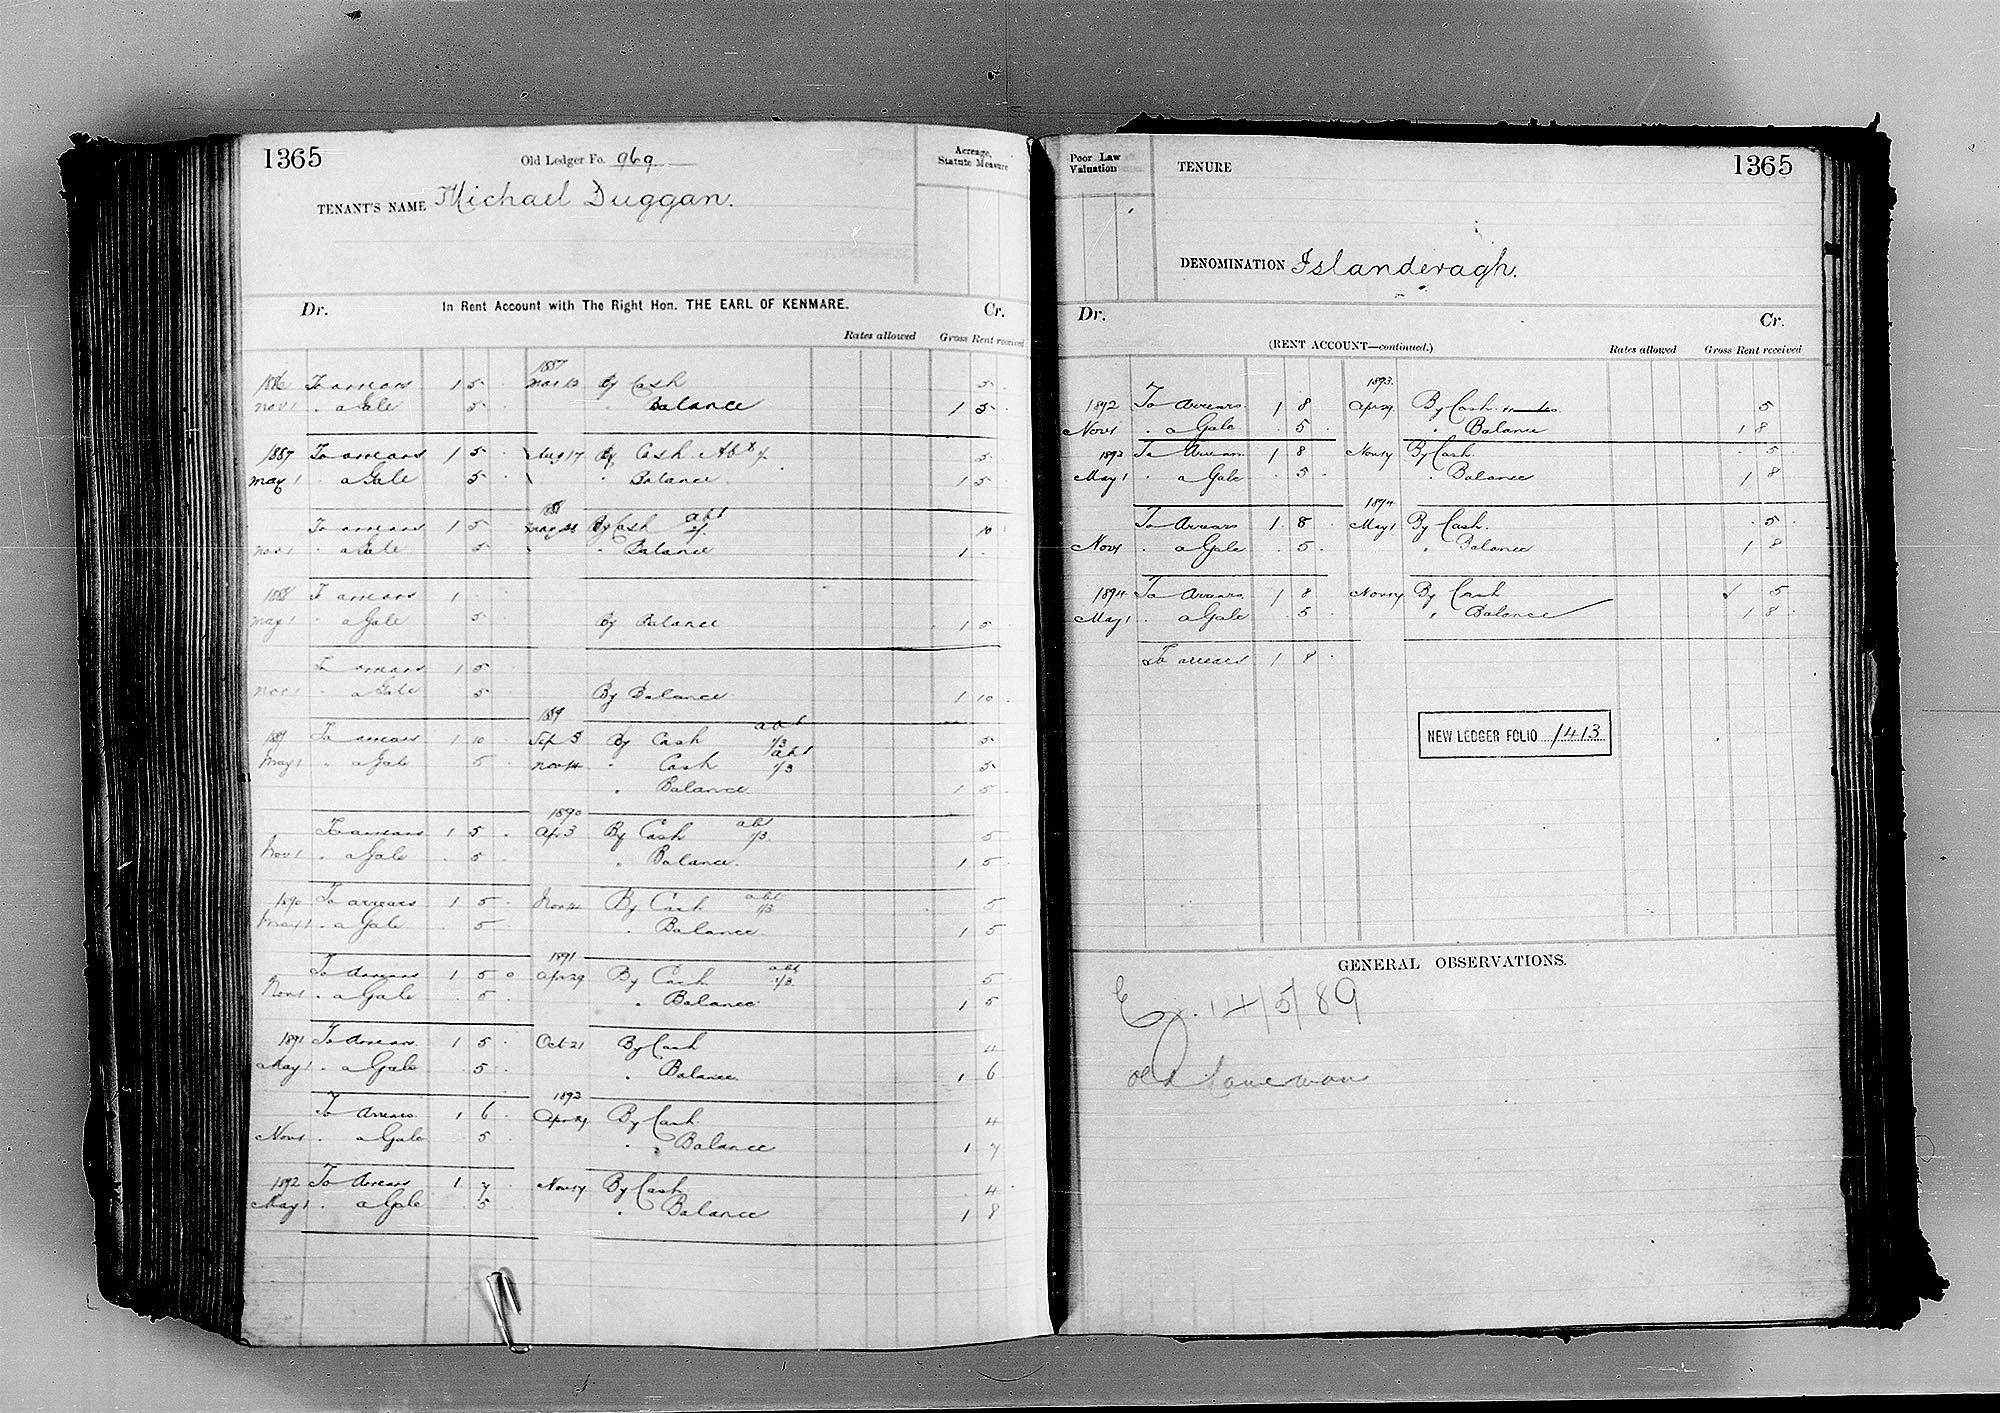 1365 Old Ledger Fo. 969 Acreage, Statute Measure
TENANT'S NAME Michael Duggan.
Dr. In Rent Account with The Right Hon. THE EARL OF KENMARE. Cr.
Rates allowed Gross Rent received
1887
1886 To arrears 1 5 By Cash 5
Nov 1 . a Gale 5 Balance 1 5
1887 To arrears 1 5 Aug 17 By Cash 5
May 1 . a Gale 5 " Balance 1 5
88
To arrears 1 5 By Cash abt 10
Nov 1 . a Gale 5 " Balance 1
1888 To arrears 1
May 1 " a Gale 5 By Balance 1 5
To arrears 1 5
Nov 1 " a Gale 5 By Balance 1 10
1889
1889 To arrears 1 10 Sep 5 By Cash abt 1/3 5
May 1 " a Gale 5 Nov 14 " Cash abt 1/3 5
" Balance 1 5
1890
To arrears 1 5 Apr 3 By Cash abt 1/3 5
Nov 1 . a Gale 5 " Balance 1 5
1890 To arrears 1 5 By Cash abt 1/3 5
May 1 . a Gale 5 " Balance 1 5
1891
To Arrears 1 5 0 Apr 29 By Cash abt 1/3 5
Nov 1 . a Gale 5 " Balance 1 5
1891 To Arrears 1 5 Oct 21 By Cash 4
May 1 . a Gale 5 " Balance 1 6
1892
To Arrears 1 6 Apr 29 By Cash 4
Nov 1 . a Gale 5 " Balance 1 7
1892 To Arrears 1 7 Nov 17 By Cash 4
May 1 . a Gale 5 " Balance 1 8
Poor Law Valuation TENURE 1365
DENOMINATION Islanderagh.
Dr. Cr.
(RENT ACCOUNT—continued.) Rates allowed Gross Rent received
1893
1892 To Arrears 1 8 Apr 29 By Cash 5
Nov 1 . a Gale 5 " Balance 1 8
1893 To Arrears 1 8 Nov 17 By Cash 5
May 1 . a Gale 5 " Balance 1 8
1894
To Arrears 1 8 May 1 By Cash. 5
Nov 1 . a Gale 5 " Balance 1 8
1894 To Arrears 1 8 Nov 14 By Cash 5
May 1 . a Gale 5 " Balance 1 8
To arrears 1 8
NEW LEDGER FOLIO 1413
GENERAL OBSERVATIONS.
14/5/89
old